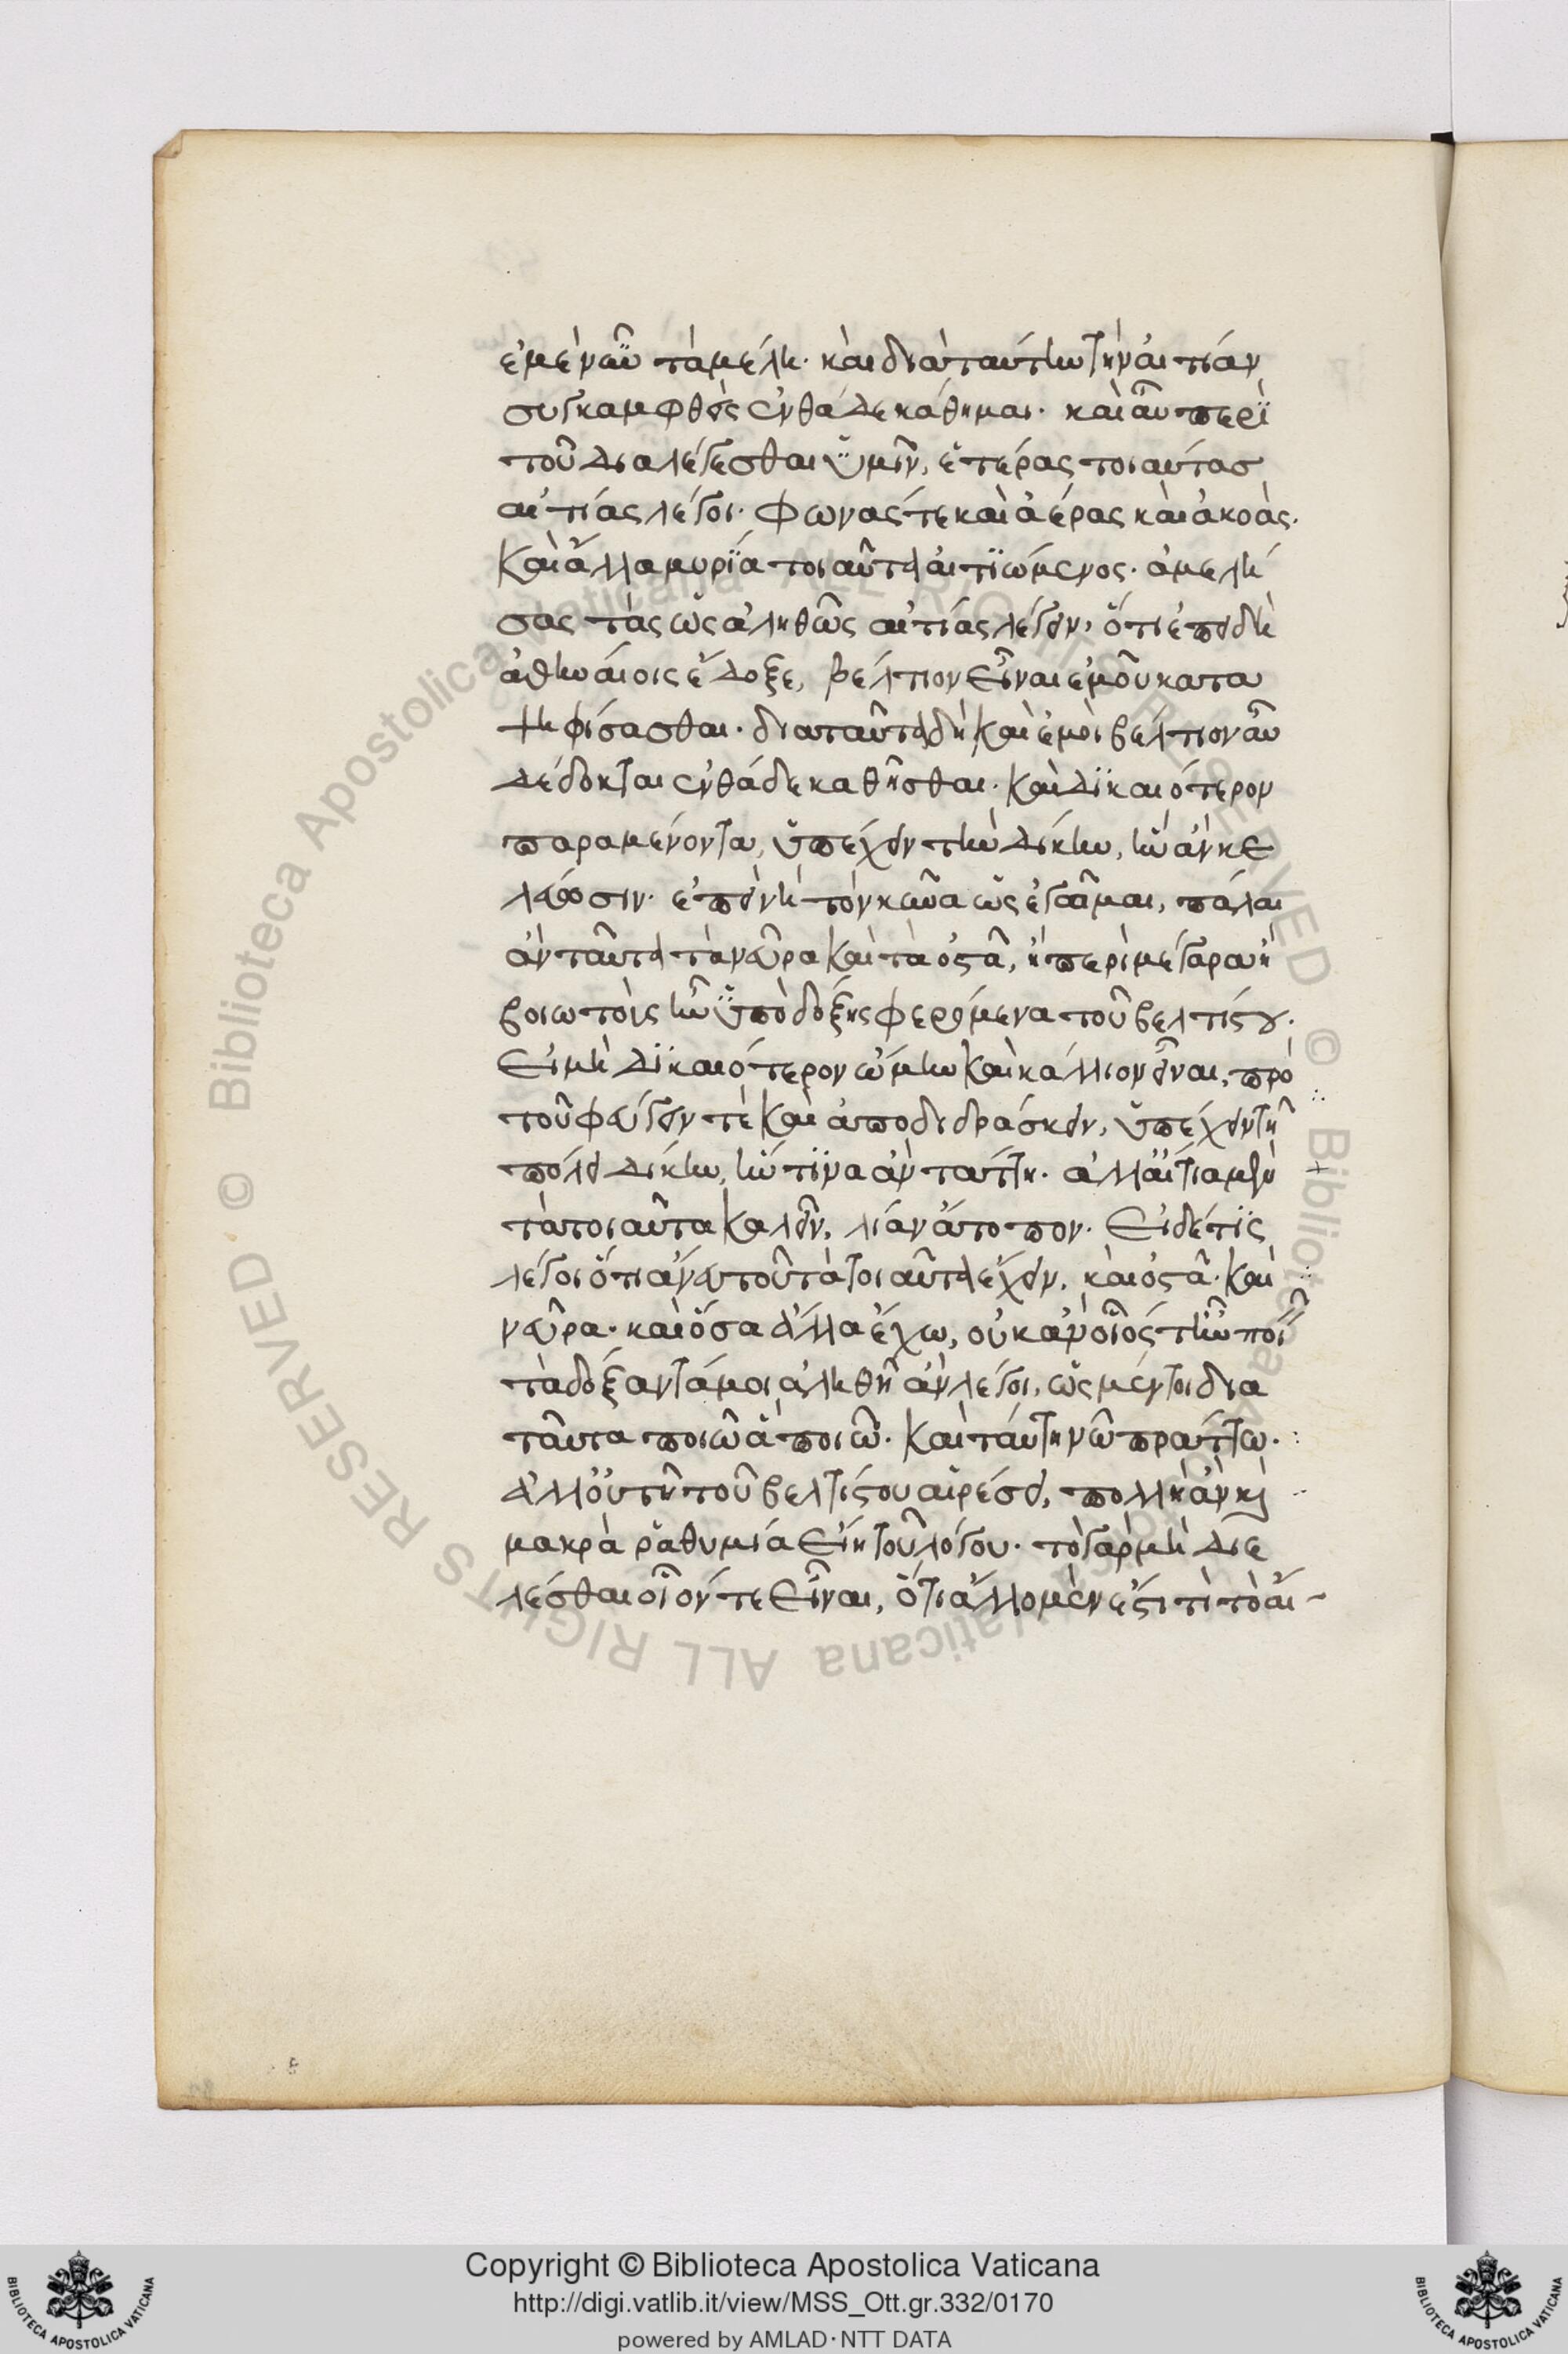 ἐμὲ νῦν τὰ μέλη· καὶ διὰ ταύτην τὴν αἰτίαν
συγκαμφθεὶς ἐνθάδε κάθημαι· καὶ αὖ περὶ
τοῦ διαλέγεσθαι ὑμῖν, ἑτέρας τοιαύτας
αἰτίας λέγοι· φωνάς τε καὶ ἀέρας καὶ ἀκοάς·
καὶ ἄλλα μυρία τοιαῦτα αἰτιώμενος· ἀμελή
σας τὰς ὡς ἀληθῶς αἰτίας λέγειν, ὅτι ἐπειδὴ
ἀθηναίοις ἔδοξε, βέλτιον εἶναι ἐμοῦ κατα
ψηφίσασθαι· διὰ ταῦτα δὴ καὶ ἐμοὶ βέλτιον αὖ
δέδοκται ἐνθάδε καθῆσθαι· καὶ δικαιότερον
παραμένοντα, ὑπέχειν τὴν δίκην, ἣν ἂν κε
λεύσωσιν· ἐπεὶ νὴ τὸν κύνα ὡς ἐγᾦμαι, πάλαι
ἂν ταῦτα τὰ νεῦρα καὶ τὰ ὀστᾶ, ἢ περὶ μέγαρα ἢ
βοιωτοὺς ἦν ὑπὸ δόξης φερόμενα τοῦ βελτίστου·
εἰ μὴ δικαιότερον ᾤμην καὶ κάλλιον εἶναι, πρὸ
τοῦ φεύγειν τὲ καὶ ἀποδιδράσκειν, ὑπέχειν τῆ
πόλει δίκην, ἥντινα ἂν τάττη· ἀλλ' αἴτια μὲν
τὰ τοιαῦτα καλεῖν, λίαν ἄτοπον· εἰ δέ τις
λέγοι ὅτι ἄνευ τοῦ τὰ τοιαῦτα ἔχειν, καὶ ὀστᾶ· καὶ
νεῦρα· καὶ ὅσα ἄλλα ἔχω, οὐκ ἂν οἷός τ' ἦν ποιεῖν
τὰ δόξαντά μοι ἀληθῆ ἂν λέγοι, ὡς μέντοι διὰ
ταῦτα ποιῶ ἃ ποιῶ· καὶ ταύτη νῷ πράττω·
ἀλλ' οὐ τῆ τοῦ βελτίστου αἱρέσει, πολλὴ ἂν καὶ
μακρὰ ῥαθυμία εἴη τοῦ λόγου· τὸ γὰρ μὴ διε
λέσθαι οἷόν τε εἶναι, ὅτι ἄλλο μέν ἐστι τὶ τὸ αἴ-
Copyright © Biblioteca Apostolica Vaticana
http://digi.vatlib.it/view/MSS_Ott.gr.332/0170
powered by AMLAD·NTT DATA